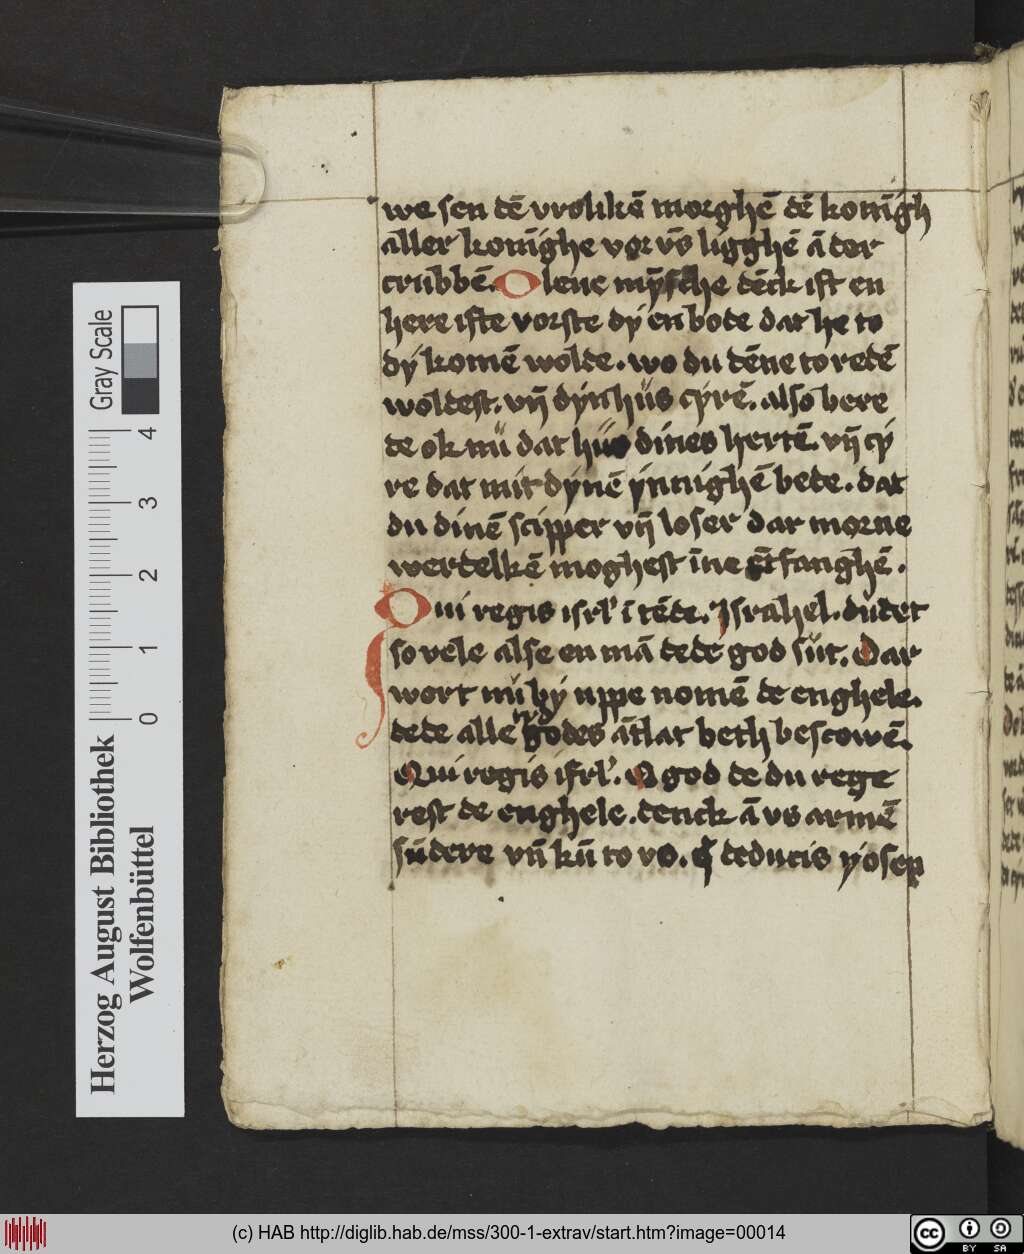 we sen dē vrolikē morghē dē konīgh
aller konīghe vor vns ligghē ā der
crubbē. O leue mȳsche dēck ist en
here ifte vorste dy en bode dat he to
dy komē wolde. wo du dēne to redē
woldest. vn̄ dyn hůs cyrē. also bere
de ok nů dat hůs dines hertē. vn̄ cy
re dat mit dynē ynnighē bede. dat
du dinē scipper vn̄ loser dar morne
werdelkē moghest īne ētfanghē.
Qui regis isrl' ītēde. Israhel. dudet
so vele alse en mā dede god sůt. Dar
wort mů by uppe nomē de enghele.
dede alle godes ātlat beth bescowē.
Qui regis isrl'. O god de du rege
rest de enghele. denck ā vs armē
sůdere vn̄ kū to vs. deducis yosep
Gray Scale
0 1 2 3 4
Herzog August Bibliothek
Wolfenbüttel
(c) HAB http://diglib.hab.de/mss/300-1-extrav/start.htm?image=00014
cc BY SA